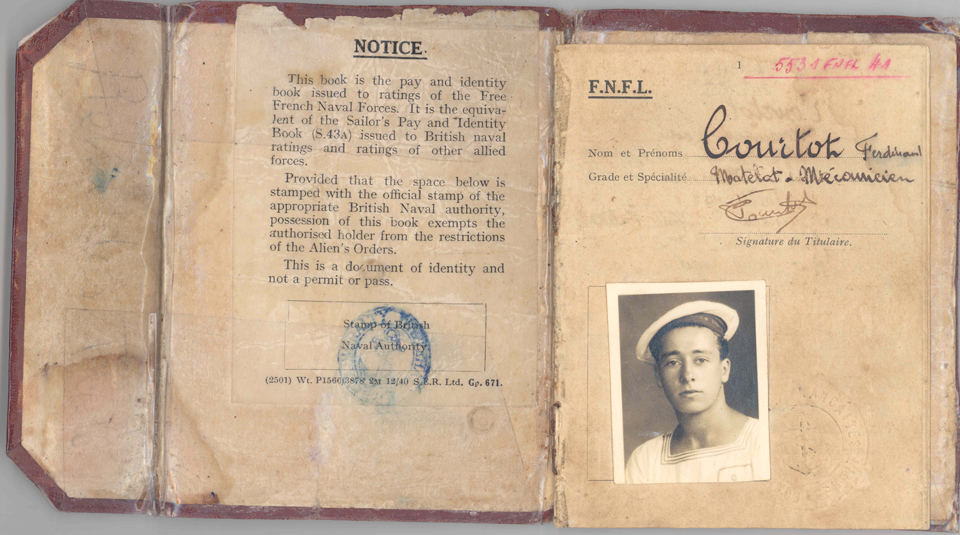 NOTICE.
This book is the pay and identity
book issued to ratings of the Free
French Naval Forces. It is the equiva-
lent of the Sailor's Pay and Identity
Book (S.43A) issued to British naval
ratings and ratings of other allied
forces.
Provided that the space below is
stamped with the official stamp of the
appropriate British Naval authority,
possession of this book exempts the
authorised holder from the restrictions
of the Alien's Orders.
This is a document of identity and
not a permit or pass.
Stamp of British
Naval Authority.
(2501) Wt. P1566/3878 2M 12/40 S.E.R. Ltd. Gp. 671.
1
5531 FNFL 41
F.N.F.L.
Nom et Prénoms Courtot Ferdinand
Grade et Spécialité Matelot - Mécanicien
Signature du Titulaire.